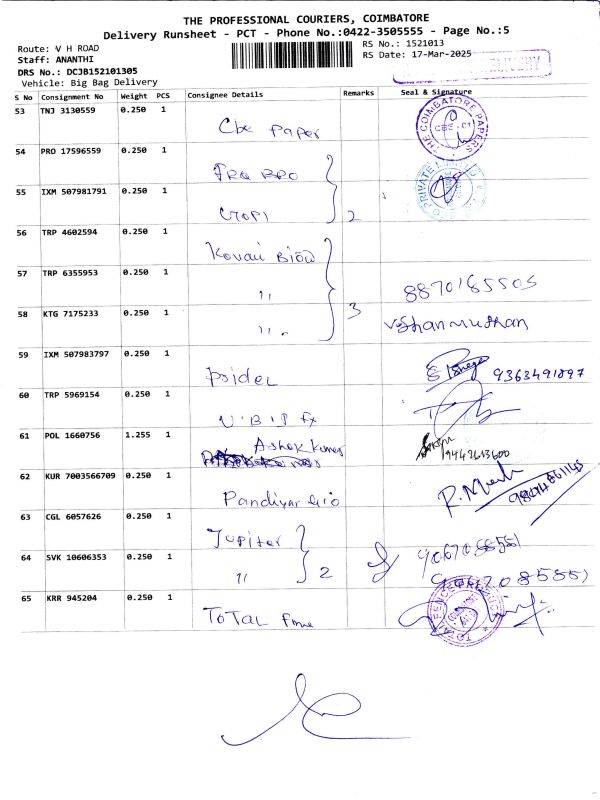 THE PROFESSIONAL COURIERS, COIMBATORE
Delivery Runsheet - PCT - Phone No.:0422-3505555 - Page No.:5
Route: V H ROAD
Staff: ANANTHI
DRS No.: DCJB152101305
Vehicle: Big Bag Delivery
RS No.: 1521013
RS Date: 17-Mar-2025
DELIVERY
S No Consignment No Weight PCS Consignee Details Remarks Seal & Signature
53 TNJ 3130559 0.250 1
Cbe paper
THE COIMBATORE PAPERS
CBE - 01
54 PRO 17596559 0.250 1
PRIVATE
55 IXM 507981791 0.250 1
2
56 TRP 4602594 0.250 1
Kovai
57 TRP 6355953 0.250 1
" 8870185505
58 KTG 7175233 0.250 1
" 3
59 IXM 507983797 0.250 1
9363491897
60 TRP 5969154 0.250 1
61 POL 1660756 1.255 1
Ashok Kumar
9442613600
62 KUR 7003566709 0.250 1
Pandiyan
63 CGL 6057626 0.250 1
Jupiter
64 SVK 10606353 0.250 1
" 2
65 KRR 945204 0.250 1
TOTAL